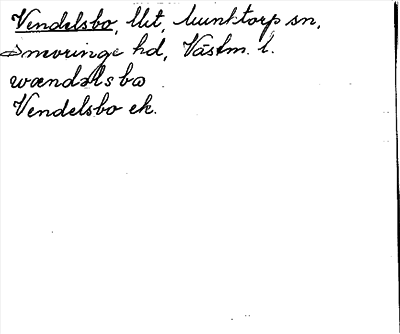 Vendelsbo, lht, Munktorp sn,
Snevringe hd, Västm. l.
wændəlsbω
Vendelsbo ek.